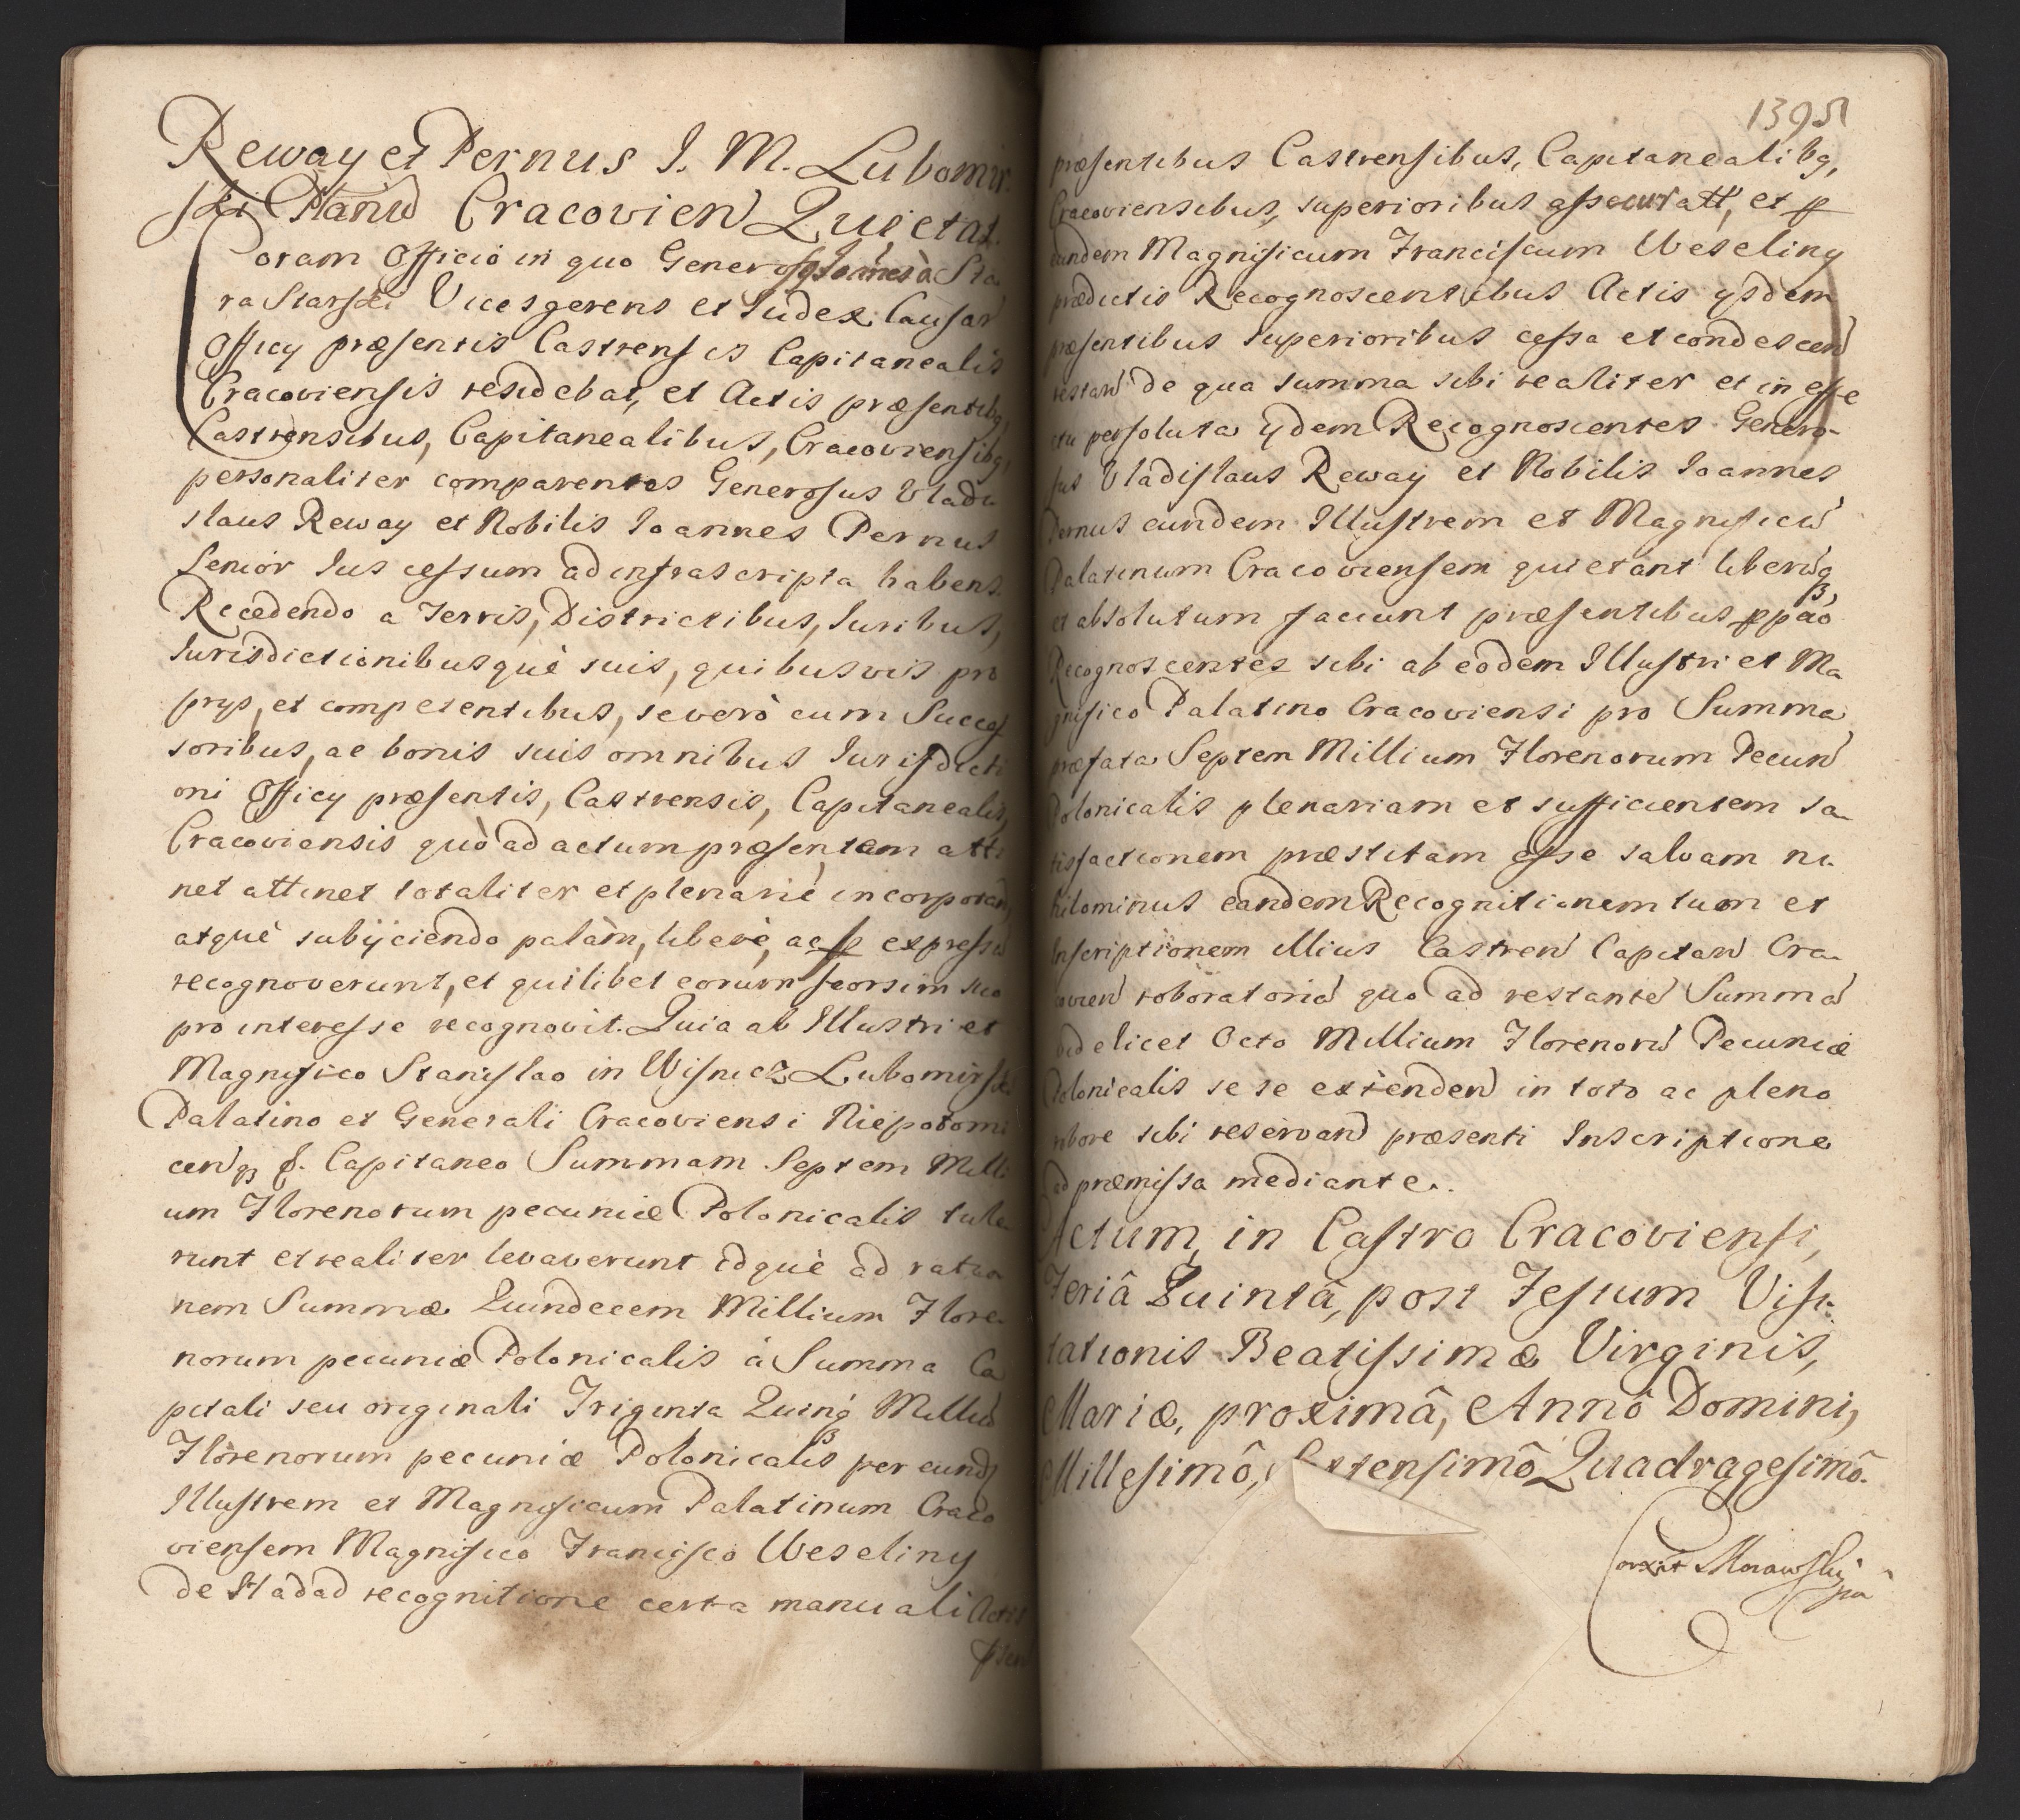 Reway et Pernus I. M. Lubomir
ski Cracovien Quietat.
Coram Officio in quo Generosus Joannes à Sta
ra Starski Vicesgerens et Iudex Causar
Officy præsentis Castrensis Capitanealis
Cracoviensis residebat, et Actis præsentibq,
Castrensibus, Capitanealibus, Cracoviensibq,
personaliter comparentes Generosus Vladi
slaus Reway et Nobilis Ioannes Pernus
Senior Ius cessum ad infrascripta habens
Recedendo a Terris, Districtibus, Iuribus,
Iurisdictionibusquè suis, quibusvis pro
prys, et competentibus, se verò cum Succes
soribus, ac bonis suis omnibus Iurisdicti
oni Officy præsentis, Castrensis, Capitanealis,
Cracoviensis quò ad actum præsentem atti
net attinet totaliter et plenariè incorporan
atquè subijciendo palàm, liberè, ac expresse
recognoverunt, et quilibet eorum seorsim suo
pro interesse recognovit. Quia ab Illustri et
Magnifico Stanislao in Wisnicz Lubomirski
Palatino et Generali Cracoviensi Niepotomi
cenqz &. Capitaneo Summam Septem Milli
um Florenorum pecuniæ Polonicalis tule
runt et realiter levaverunt idquè ad ratio
nem Summæ Quindecem Millium Flore
norum pecuniæ Polonicalis à Summa Ca
pitali seu originali Triginta Quinq Milliu
Florenorum pecuniæ Polonicalis per eund
Illustrem et Magnificum Palatinum Craco
viensem Magnifico Francisco Weseliny
de Hadad recognitione certa manuali Actis
præsen
1395
præsentibus Castrensibus, Capitanealibq,
Cracoviensibus, superioribus assecuratt, et p
eundem Magnificum Franciscum Weseliny
prædictis Recognoscentibus Actis ysdem
præsentibus superioribus cessa et condescen
restan de qua summa sibi realiter et in effe
ctu persoluta ydem Recognoscentes Genero-
sus Vladislaus Reway et Nobilis Ioannes
Pernus eundem Illustrem et Magnificu
Palatinum Cracoviensem quietant liberuqz
et absolutum faciunt præsentibus ppao
Recognoscentes sibi ab eodem Illustri et Ma
gnifico Palatino Cracoviensi pro Summa
præfata Septem Millium Florenorum Pecun
Polonicalis plenariam et sufficientem sa
tisfactionem præstitam esse salvam ni
hilominus eandem Recognitionem tum et
Inscriptionem illius Castren Capitan Cra
covien roboratoria quo ad restante Summa
videlicet Octo Millium Florenoru Pecuniæ
Polonicalis se se extenden in toto ac pleno
robore sibi reservand præsenti Inscriptione
ad præmissa mediante.
Actum in Castro Cracoviensi,
Feriâ Quintâ, post Festum Visi-
tationis Beatissimæ Virginis,
Mariæ, proximâ, Annô Domini,
Millesimô, Quadragesimô.
Corexit Morawski